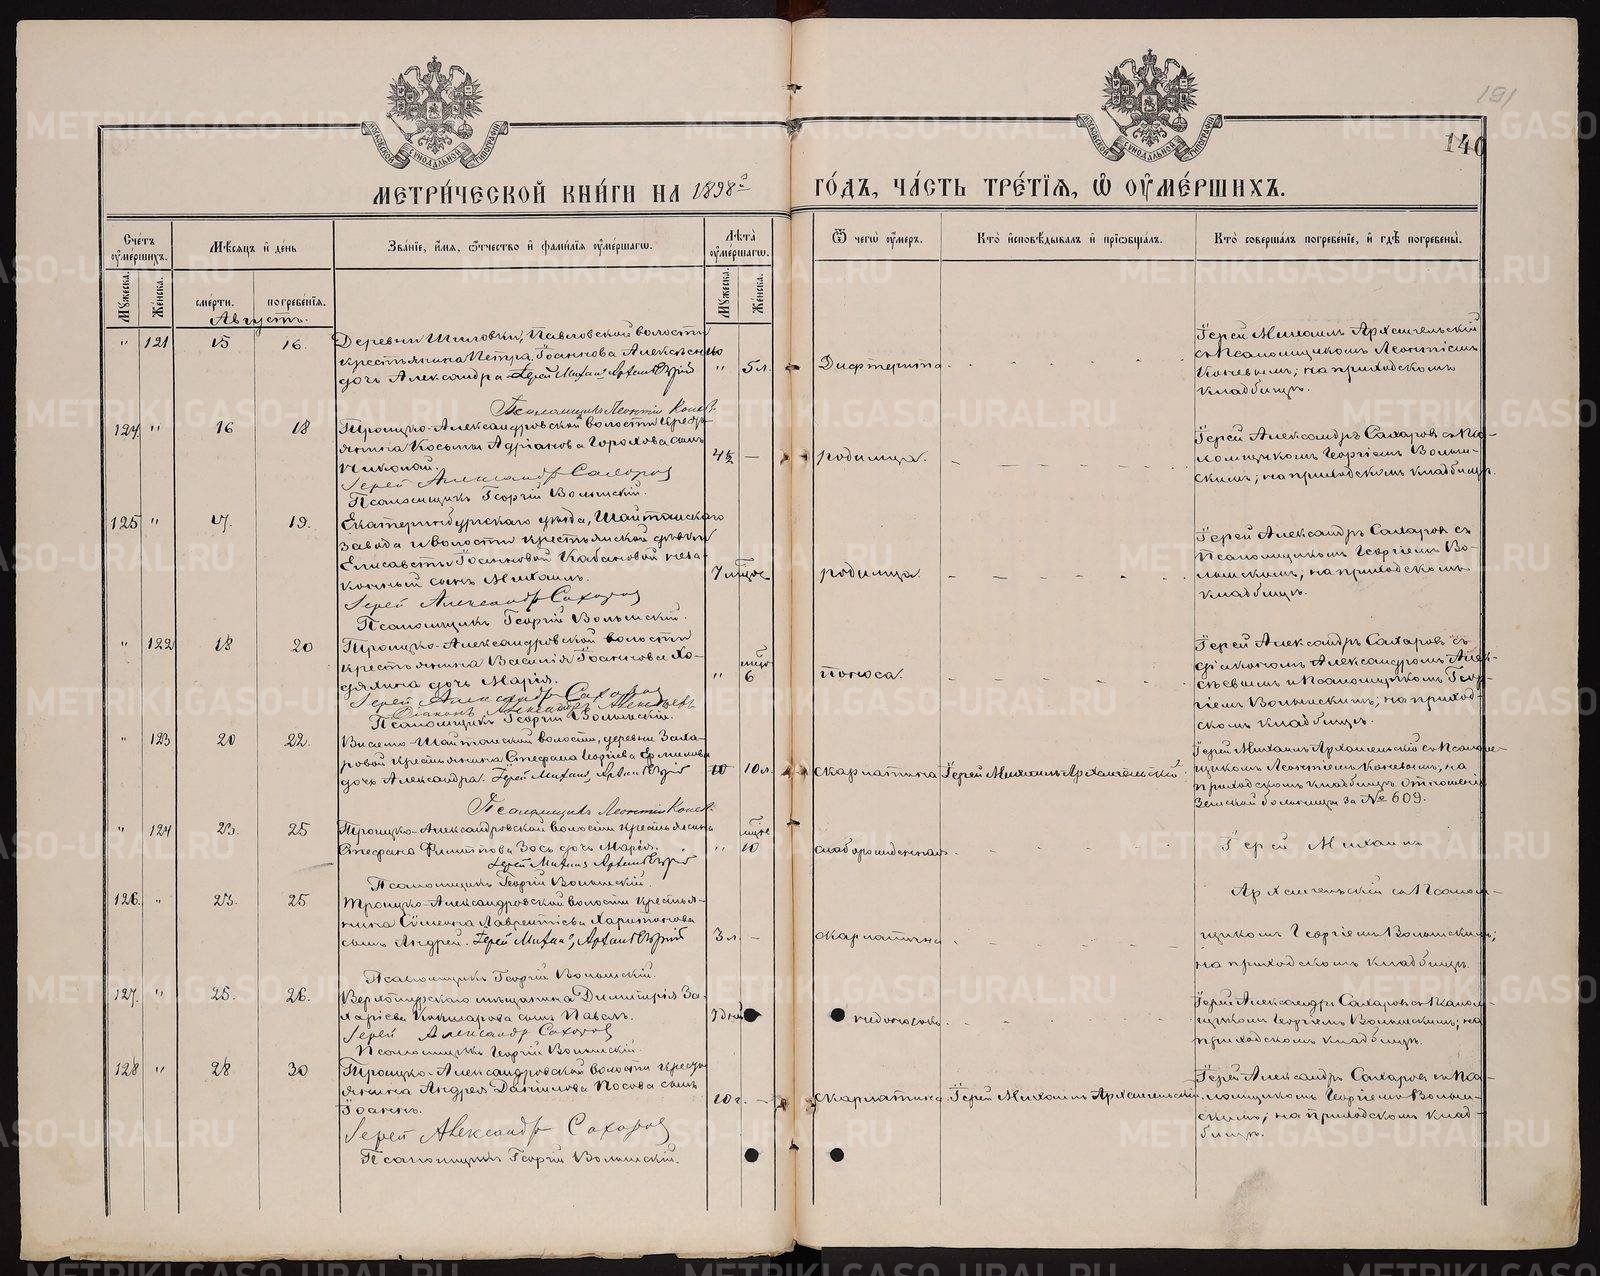 191
140
МОСКОВСКОЙ СѴНОДАЛЬНОЙ ТИПОГРАФІИ
МОСКОВСКОЙ СѴНОДАЛЬНОЙ ТИПОГРАФІИ
МЕТРИ́ЧЕСКОЙ КНИ́ГИ НА 1898й
ГО́ДЪ, ЧА́СТЬ ТРЕ́ТІѦ, Ѡ҆ ОУ҆МЕ́РШИХЪ.
Сче́тъ оу҆ме́ршихъ.
Мѣ́сѧцъ и҆ де́нь
Зва́нїе, и҆́мѧ, ѻ҆́тчество и҆ фами́лїѧ оу҆ме́ршагѡ.
Лѣ́та оу҆ме́ршагѡ.
Ѿ чегѡ̀ оу҆́меръ.
Кто̀ и҆сповѣ́дывалъ и҆ прїѡбща́лъ.
Кто̀ соверша́лъ погребе́нїе, и҆ гдѣ̀ погребены̀.
Мꙋ́жеска.
Же́нска.
сме́рти.
погребе́нїѧ.
Мꙋ́жеска.
Же́нска.
Августъ.
" 121 15 16.
Деревни Шиловки, Павловской волости
крестьянина Петра Іоаннова
дочь Александра Іерей Михаилъ Архангельскій
Псаломщикъ Леонтій Конев.
" 5 л.
Дифтерита
Іерей Михаилъ Архангельскій
съ Псаломщикомъ Леонтіемъ
Коневымъ; на приходскомъ
кладбищѣ.
124 " 16 18
Троицко-Александровской волости кресть-
янина Косьмы Адріанова Горохова сынъ
Николай.
Іерей Александръ Сахаровъ
Псаломщикъ Георгій Волынскій.
4½ —
родимца.
Іерей Александръ Сахаровъ съ Пса-
ломщикомъ Георгіемъ Волын-
скимъ; на приходскомъ кладбищѣ.
125 " 17. 19.
Екатеринбургскаго уѣзда, Шайтанскаго
завода и волости крестьянской дѣвки
Елисаветы Іоанновой Кабановой неза-
конный сынъ Михаилъ.
Іерей Александръ Сахаровъ
Псаломщикъ Георгій Волынскій.
7 мцов
родимца.
Іерей Александръ Сахаровъ съ
Псаломщикомъ Георгіемъ Во-
лынскимъ; на приходскомъ
кладбищѣ.
" 122 18 20
Троицко-Александровской волости
крестьянина Василія Іоаннова Хо-
дяхина дочь Марія.
Іерей Александръ Сахаровъ
Діаконъ Александръ Алексѣевъ
Псаломщикъ Георгій Волынскій.
" 6
поноса.
Іерей Александръ Сахаровъ съ
діакономъ Александромъ Алек-
сѣевымъ и Псаломщикомъ Геор-
гіемъ Волынскимъ; на приход-
скомъ кладбищѣ.
" 123 20 22.
Висимо-Шайтанской волости, деревни Заха-
ровой крестьянина Стефана Георгіева
дочь Александра. Іерей Михаилъ Архангельскій
Псаломщикъ Леонтій Конев.
10 10 л.
скарлатина
Іерей Михаилъ Архангельскій
Іерей Михаилъ Архангельскій съ Псалом-
щикомъ Леонтіемъ Коневымъ; на
приходскомъ кладбищѣ. Отношеніе
Земской больницы за № 609.
" 124 23. 25
Троицко-Александровской волости крестьянина
Стефана Филиппова дочь Марія.
Іерей Михаилъ Архангельскій
Псаломщикъ Георгій Волынскій.
" 10
слаборожденная
Іерей Михаилъ
Архангельскій съ Псалом-
щикомъ Георгіемъ Волынскимъ;
на приходскомъ кладбищѣ.
126. " 23. 25
Троицко-Александровской волости крестья-
нина Сѵмеона Лаврентіева Харитонова
сынъ Андрей. Іерей Михаилъ Архангельскій
Псаломщикъ Георгій Волынскій.
3 л. —
скарлатина
127. " 25. 26.
Верхотурскаго мѣщанина Димитрія За-
харіева сынъ Павелъ.
Іерей Александръ Сахаровъ
Псаломщикъ Георгій Волынскій.
7 дней
недоносокъ
Іерей Александръ Сахаровъ съ Псалом-
щикомъ Георгіемъ Волынскимъ; на
приходскомъ кладбищѣ.
128 " 28 30
Троицко-Александровской волости кресть-
янина Андрея Даніилова Носова сынъ
Іоаннъ.
Іерей Александръ Сахаровъ
Псаломщикъ Георгій Волынскій.
10 г. —
скарлатина
Іерей Михаилъ Архангельскій
Іерей Александръ Сахаровъ съ Пса-
ломщикомъ Георгіемъ Волын-
скимъ; на приходскомъ клад-
бищѣ.